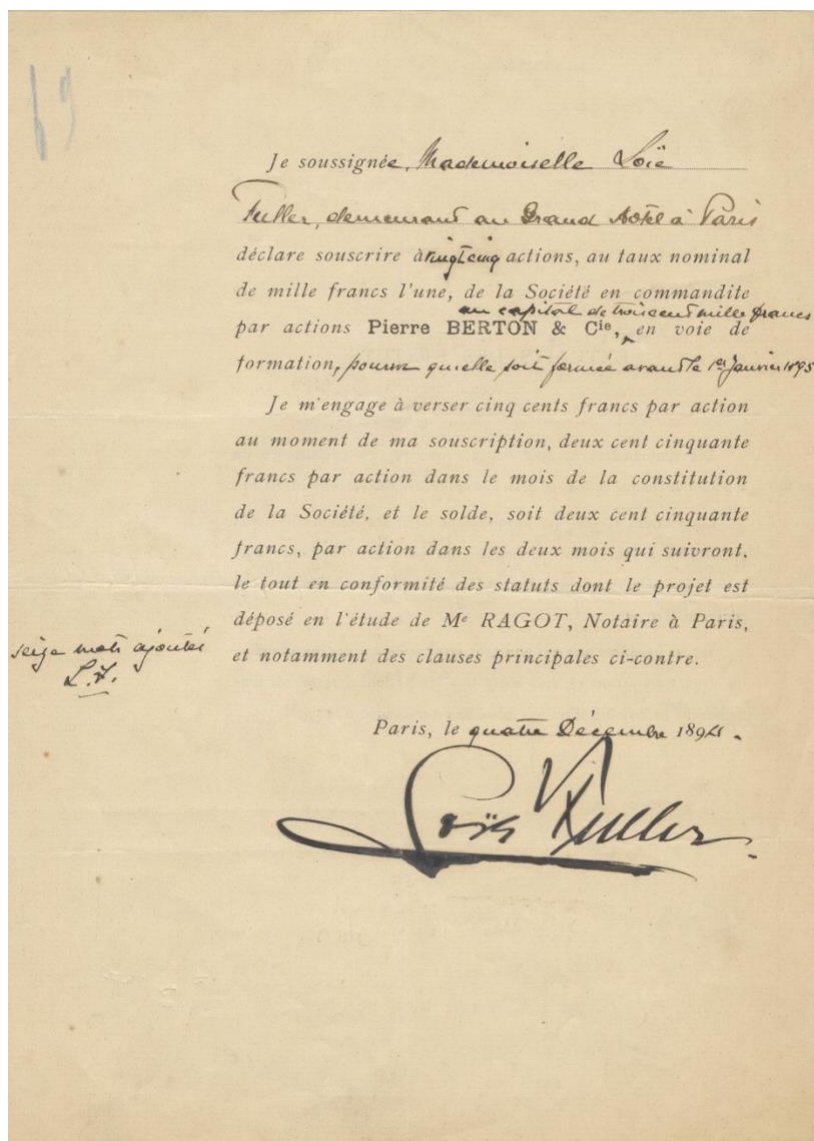 69
Je soussignée, Mademoiselle Loïe
Fuller, demeurant au Grand Hôtel à Paris
déclare souscrire à vingt cinq actions, au taux nominal
de mille francs l'une, de la Société en commandite
au capital de trois cent mille francs
par actions Pierre BERTON & Cie, en voie de
formation, pourvu qu'elle soit formée avant le 1er Janvier 1895
Je m'engage à verser cinq cents francs par action
au moment de ma souscription, deux cent cinquante
francs par action dans le mois de la constitution
de la Société, et le solde, soit deux cent cinquante
francs, par action dans les deux mois qui suivront,
le tout en conformité des statuts dont le projet est
déposé en l'étude de Me RAGOT, Notaire à Paris,
et notamment des clauses principales ci-contre.
seize mots ajoutés
L.F.
Paris, le quatre Décembre 1894.
Loïe Fuller.